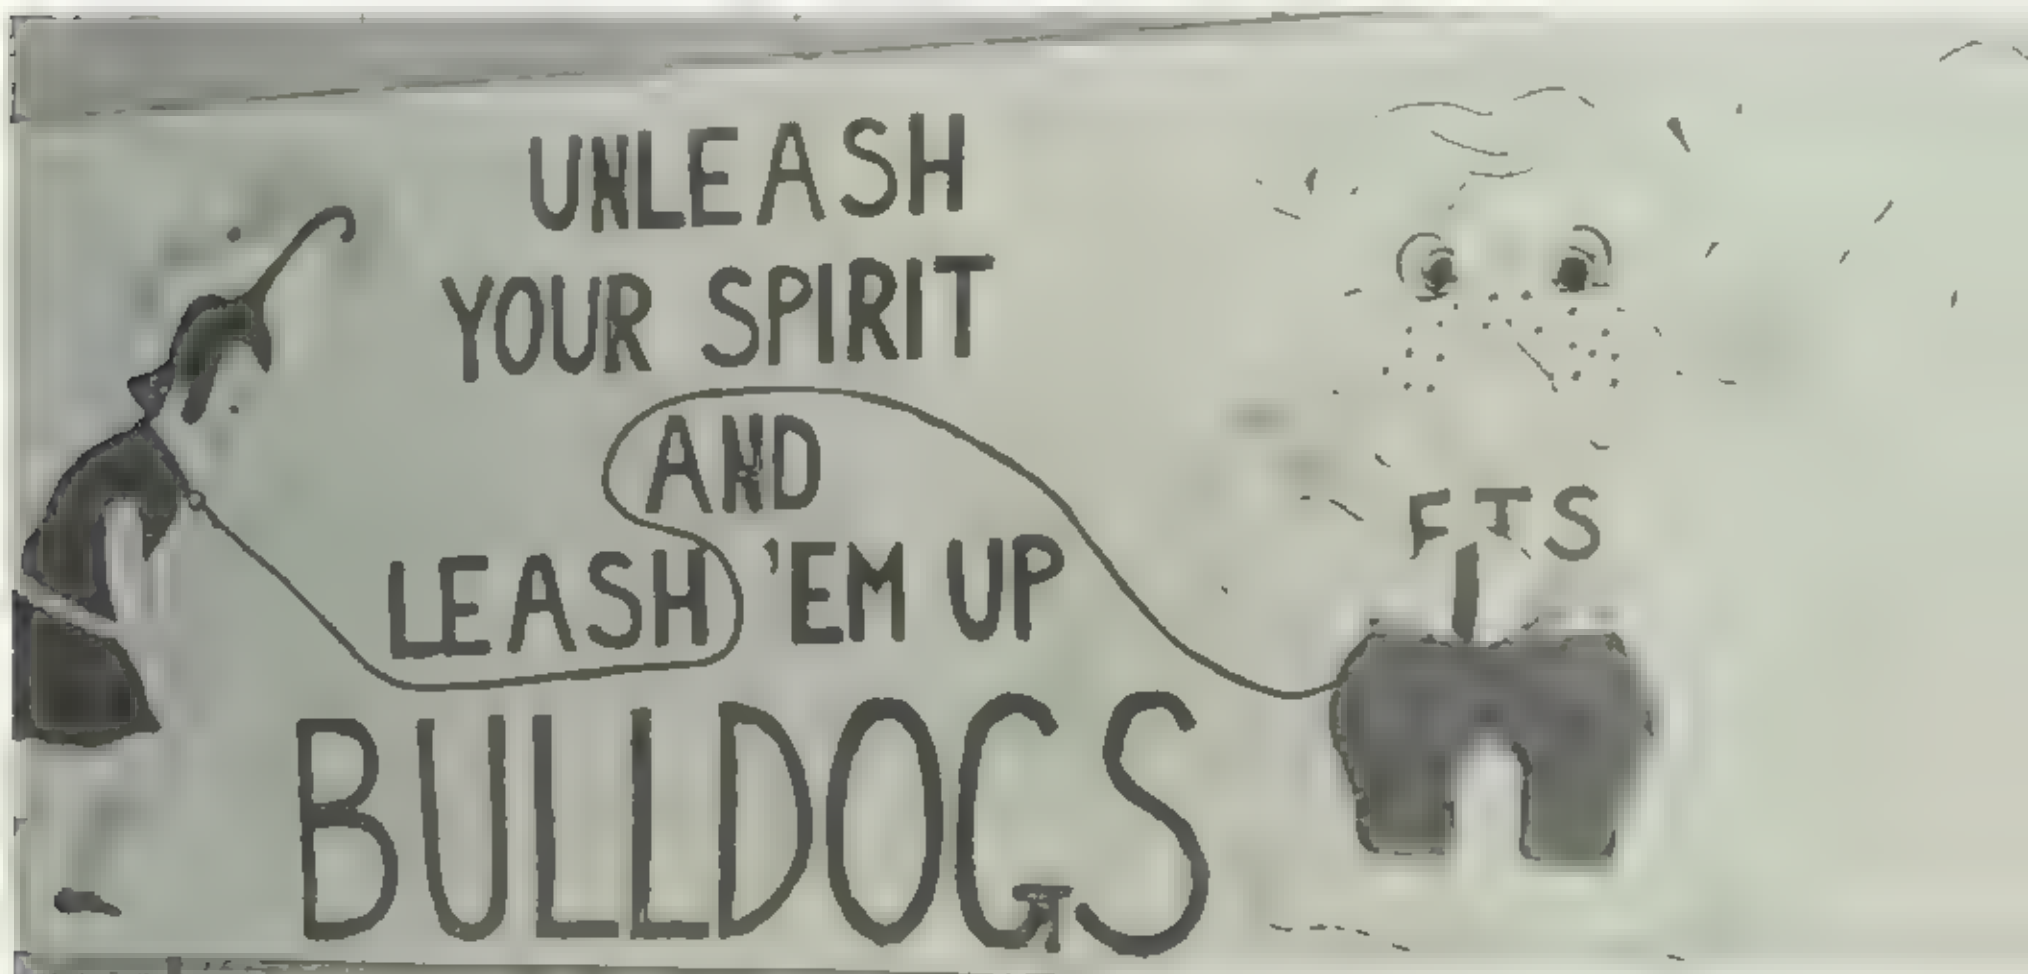 UNLEASH
YOUR SPIRIT
AND
LEASH 'EM UP
BULLDOGS
FTS